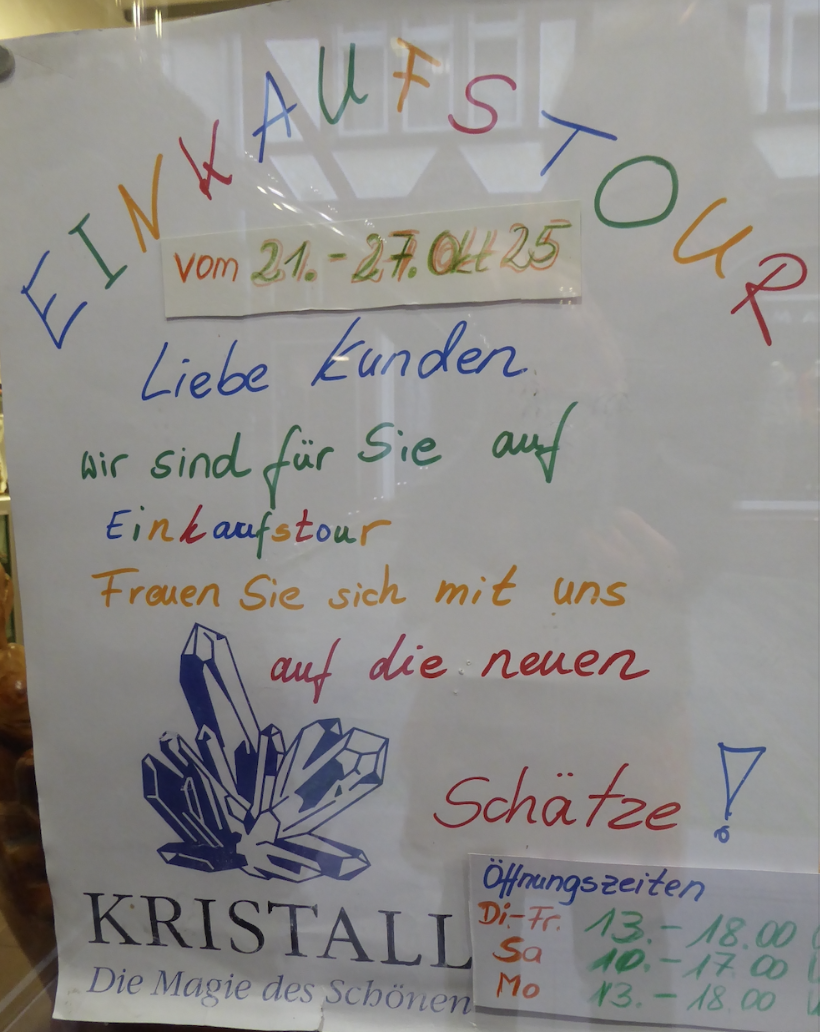 EINKAUFSTOUR
vom 21.-27. Okt 25
Liebe Kunden
wir sind für Sie auf
Einkaufstour
Freuen Sie sich mit uns
auf die neuen
Schätze !
KRISTALL
Die Magie des Schönen
Öffnungszeiten
Di-Fr. 13.-18.00
Sa 10.-17 00
Mo 13.-18.00